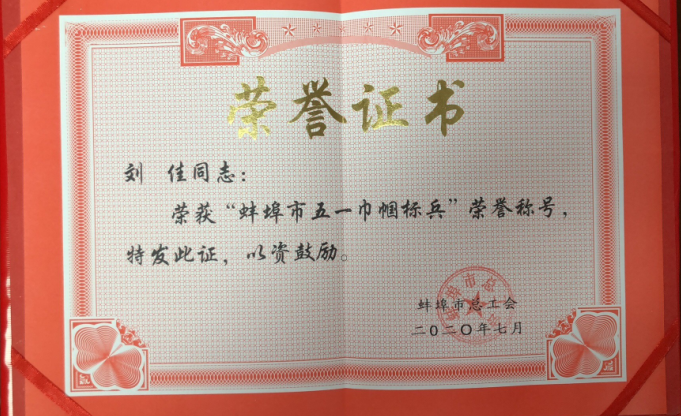 荣誉证书
刘 佳同志：
荣获“蚌埠市五一巾帼标兵”荣誉称号，
特发此证，以资鼓励。
蚌埠市总工会
二〇二〇年七月